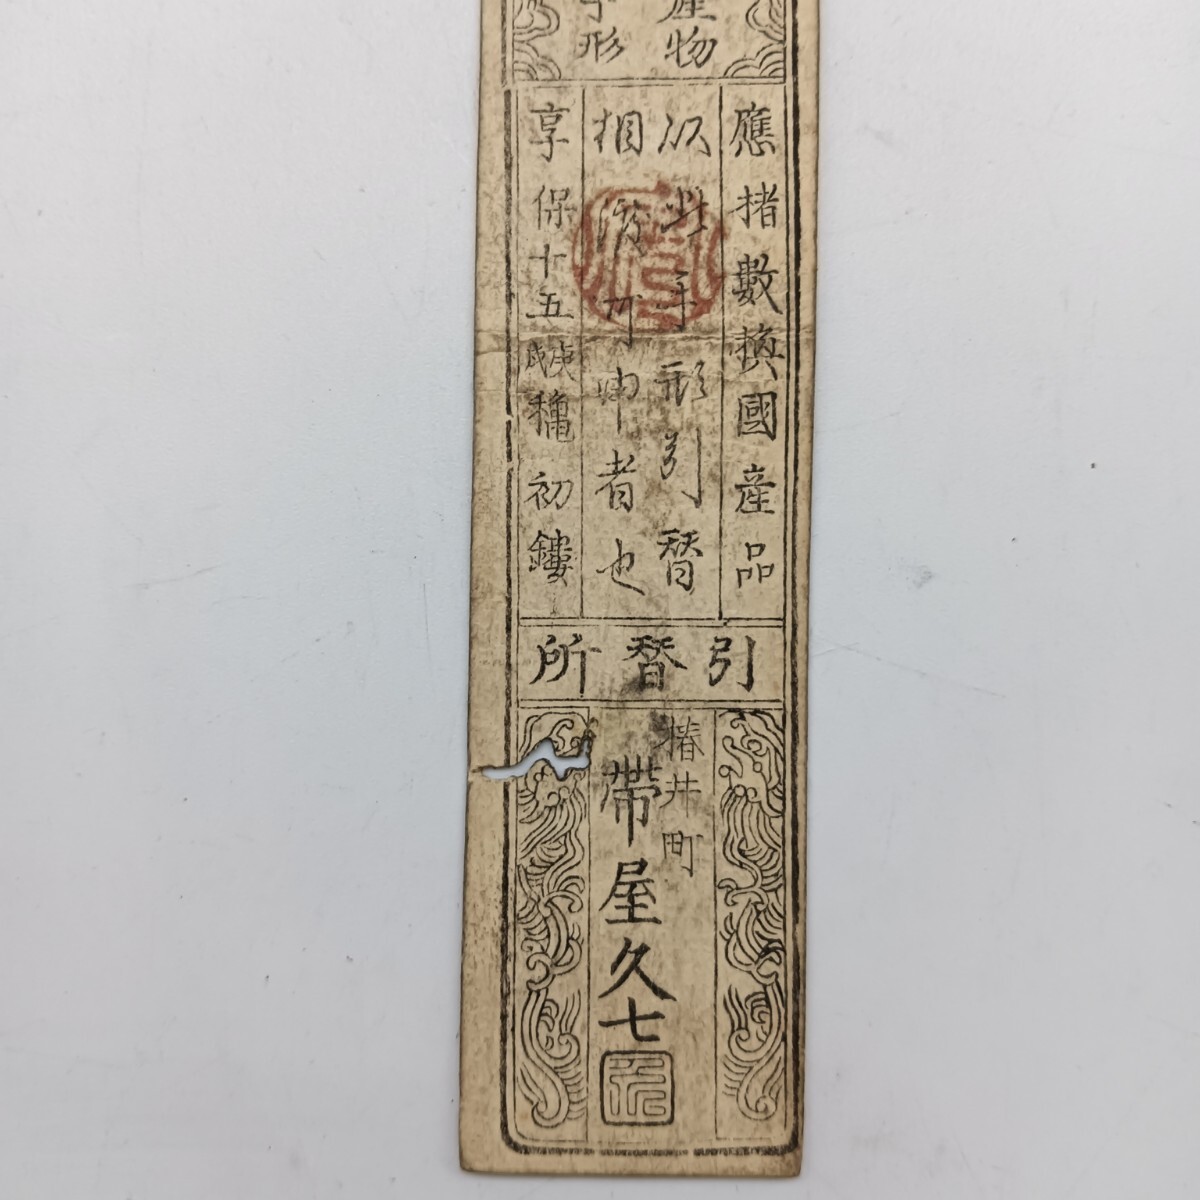 産物
手形
應楮數換國産品
以此手形引替
相渡可申者也
享保十五庚戌龝初鏤
引替所
椿井町
帶屋久七